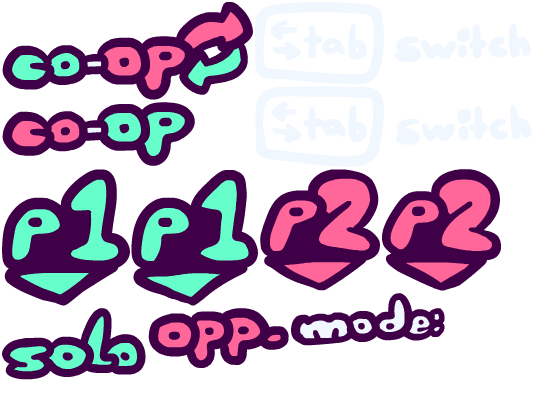 co-op tab switch
co-op tab switch
p1 p1 p2 p2
solo opp. mode: